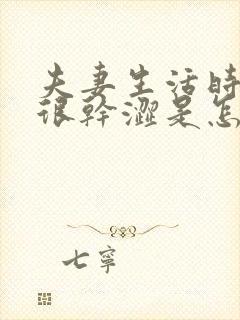 夫妻生活時
很幹澀是怎
七寧